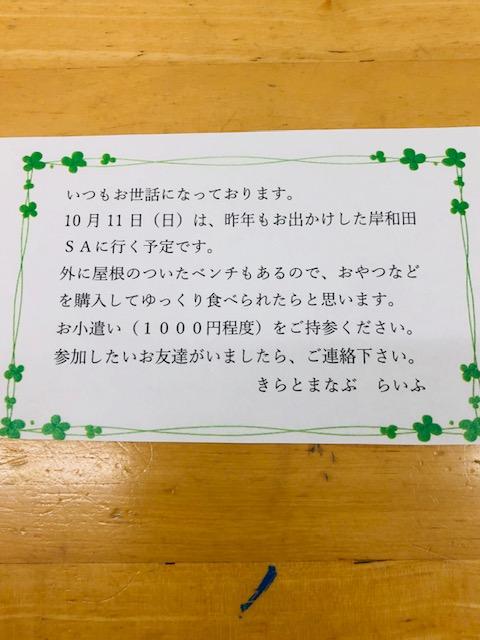 いつもお世話になっております。
10月11日（日）は、昨年もお出かけした岸和田
ＳＡに行く予定です。
外に屋根のついたベンチもあるので、おやつなど
を購入してゆっくり食べられたらと思います。
お小遣い（１０００円程度）をご持参ください。
参加したいお友達がいましたら、ご連絡下さい。
きらとまなぶ　らいふ